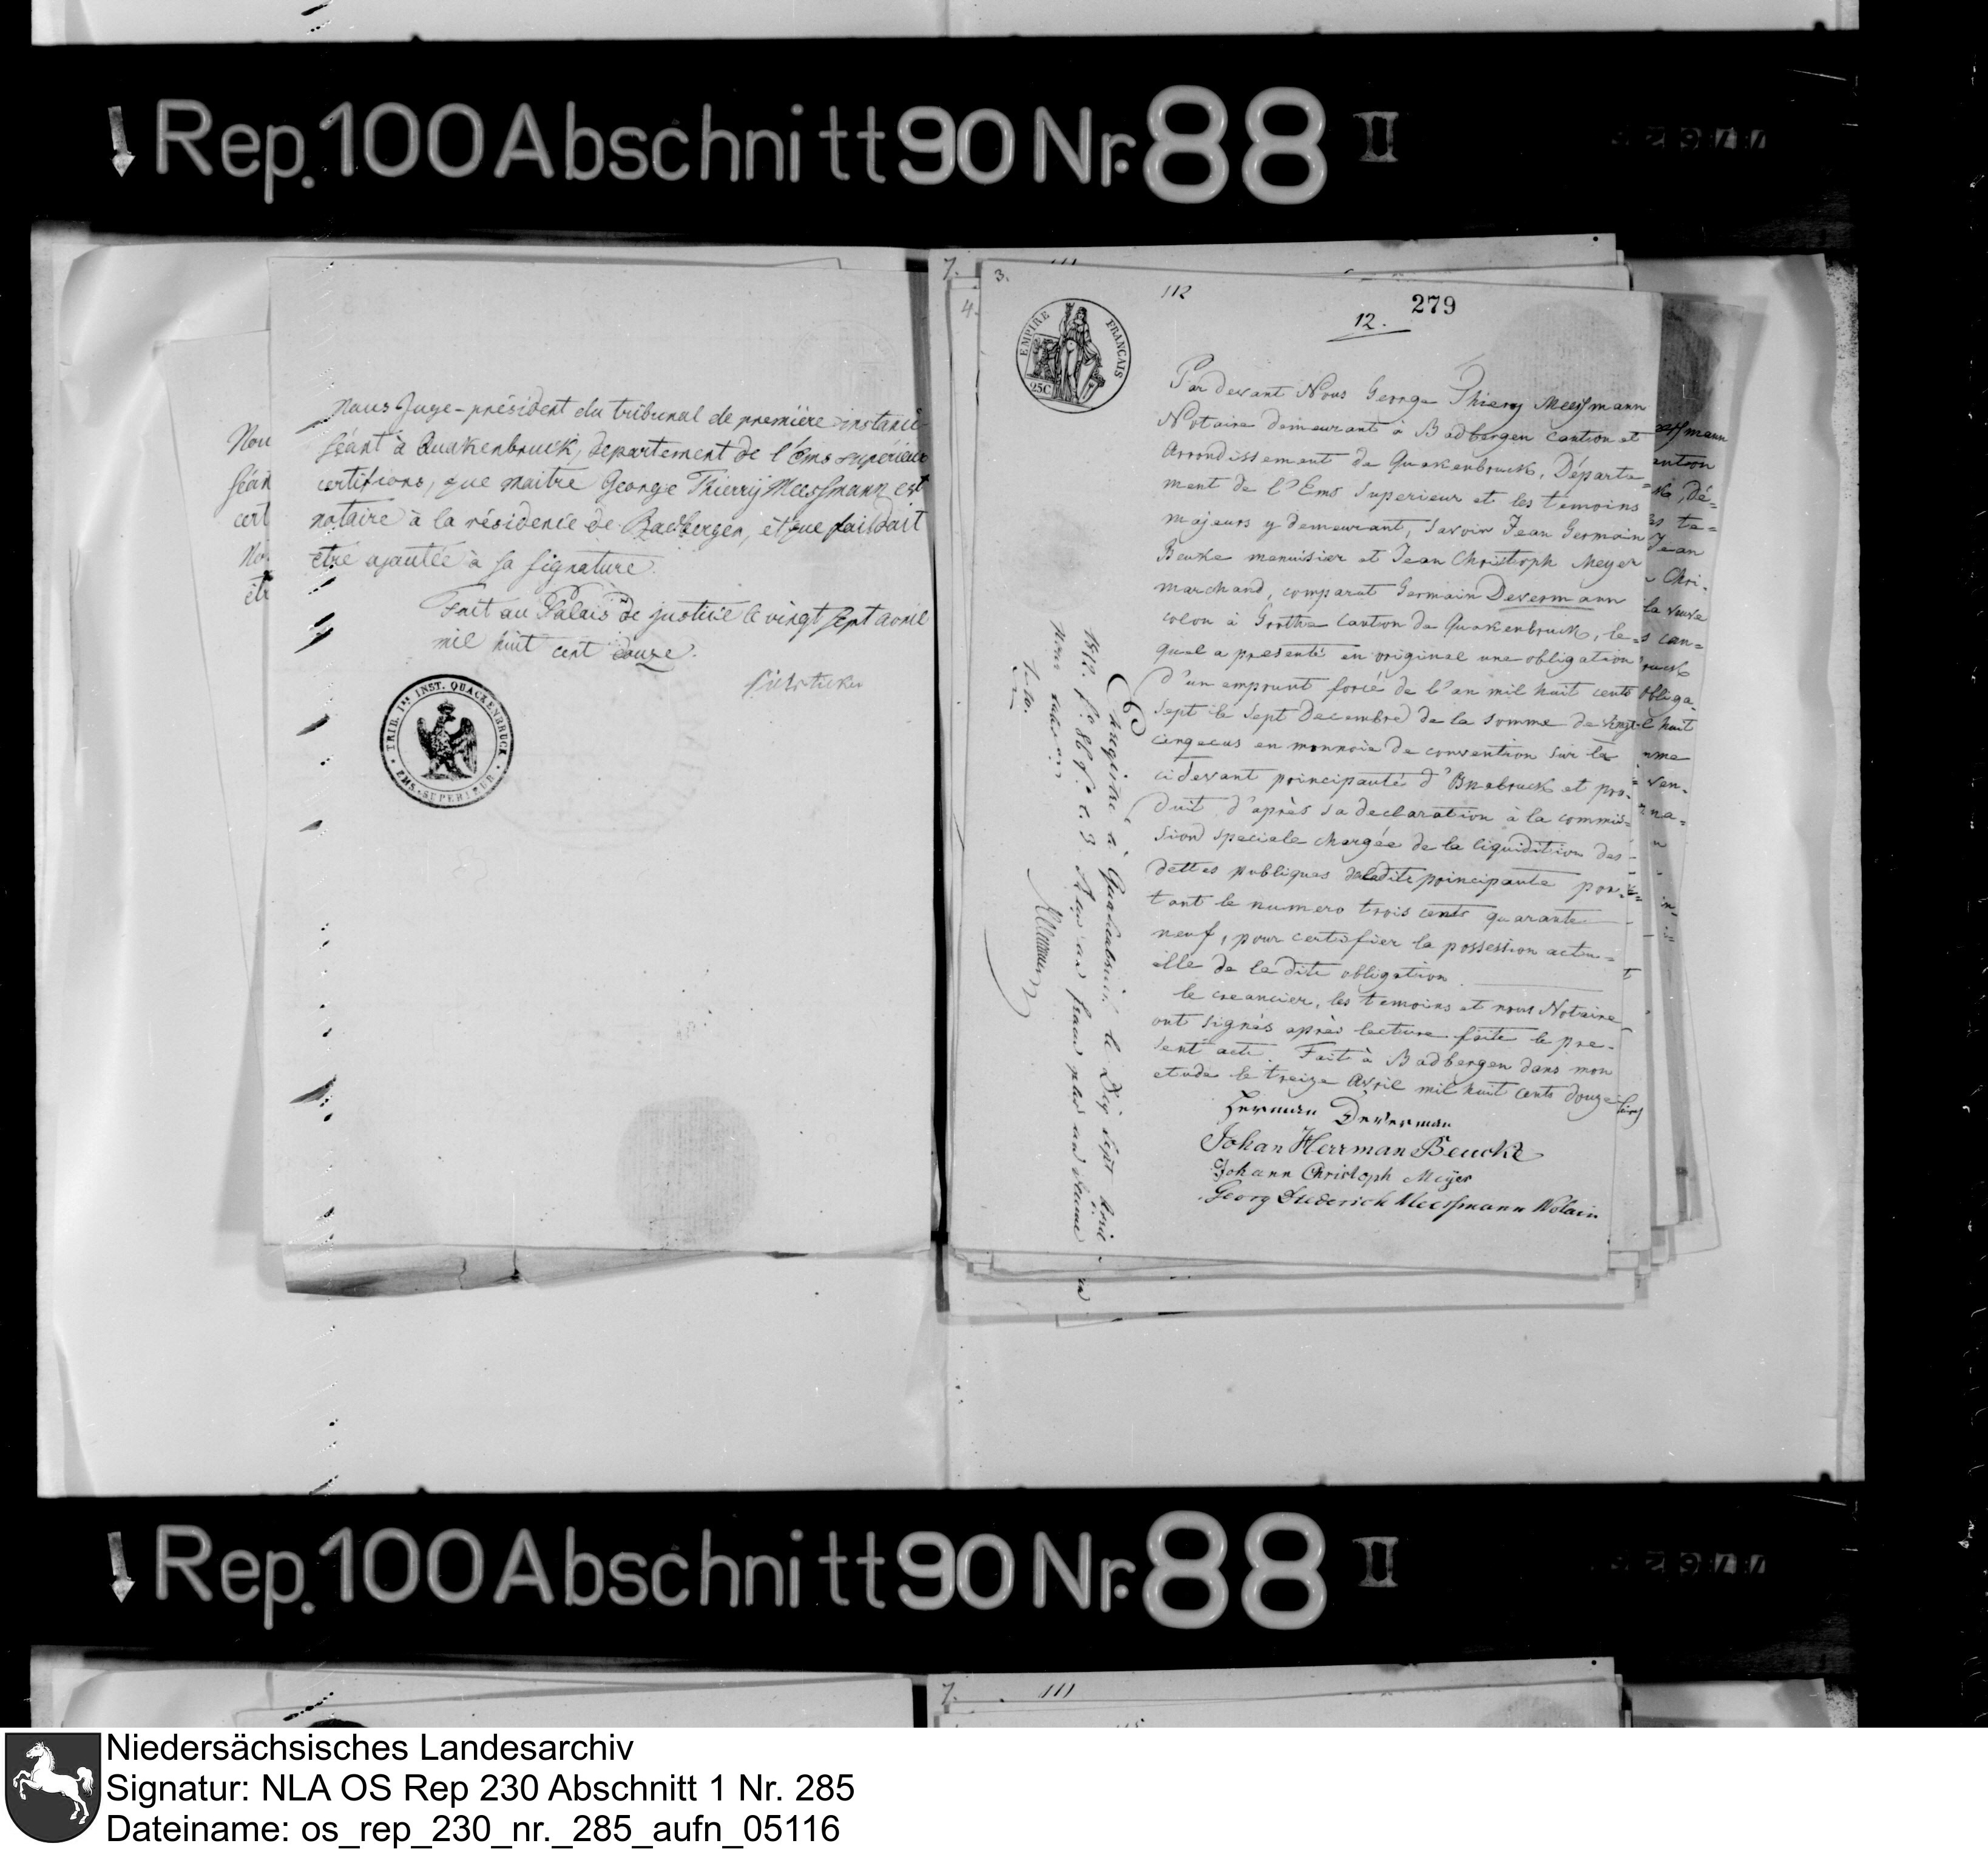 Rep. 100 Abschnitt 90 Nr. 88 II
Nous Juge-président du tribunal de première instance
séant à Quakenbruck, departement de l'Ems superieur
certifions, que maitre George Thierrÿ Meessmann est
notaire à la résidence de Badbergen, et que foi doit
être ajoutée à sa signature.
Fait au Palais de justice le vingt sept avril
mil huit cent douze.
TRIB. 1re INST. QUACKENBRUCK
EMS-SUPERIEUR
Nou
séan
cert
No
êtr
7. 111
3.
4.
112
279
12.
EMPIRE FRANÇAIS
25C
Par devant Nous George Thierry Meessmann
Notaire demeurant à Badbergen Canton et
Arrondissement de Quakenbruck, Départe=
ment de l'Ems Superieur et les témoins
majeurs y demeurant, savoir Jean Germain
Beuke menuisier et Jean Christoph Meyer
marchand, comparut Germain Deverm ann
colon à Grothe Canton de Quakenbruck, le=
quel a presenté en original une obligation
d'un emprunt forcé de l'an mil huit cents
sept le sept Decembre de la somme de vingt
cinq ecus en monnoie de convention sur la
cidevant principauté d'Osnabruck et pro=
duit d'après sa declaration à la commis=
sion speciale chargée de la liquidition des
dettes publiques de ladite principauté por=
tant le numero trois cents quarante
neuf, pour certifier la possession actu=
elle de la dite obligation.
le creancier, les temoins et nous Notaire
ont signés après lecture faite le pre=
sent acte. Fait à Badbergen dans mon
etude le treize Avril mil huit cents douze
Herman Deverman
Johan Herrman Beucke
Johann Christoph Meÿer
Georg Diederich Meessmann Notair
Enregistré à Quakenbruck le Dix sept Avril
1812. fo. 86 Vo. c. 3 Reçu un franc plus un décime
Rep. 100 Abschnitt 90 Nr. 88 II
7. 111
Niedersächsisches Landesarchiv
Signatur: NLA OS Rep 230 Abschnitt 1 Nr. 285
Dateiname: os_rep_230_nr._285_aufn_05116